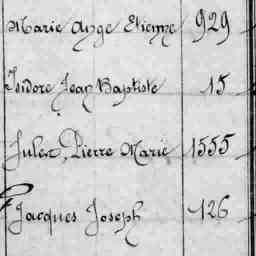 Marie Ange Etienne 929
Isidore Jean Baptiste 15
Jules, Pierre Marie 1555
Jacques Joseph 126